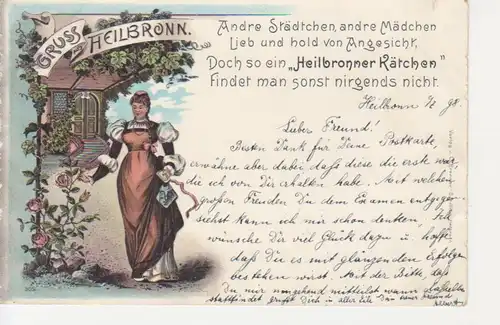 GRUSS AUS HEILBRONN.
Andre Städtchen, andre Mädchen
Lieb und hold von Angesicht,
Doch so ein „Heilbronner Kätchen"
Findet man sonst nirgends nicht.
Heilbronn 98.
Lieber Freund!
Besten Dank für Deine Postkarte,
erwähne aber dabei daß diese die erste war
die ich von Dir erhalten habe. Mit welchen
großen Freuden Du dem Examen entgegen-
siehst kann ich mir schon denken. Ich
wünsche Dir viel Glück dazu u. hoffe
daß Du es mit glänzendem Erfolge
bestehen wirst. Mit der Bitte, daß
Du mir umgehend mitteilst wann dasselbe
stattfindet grüßt Dich in aller Eile Dein Freund
Albert